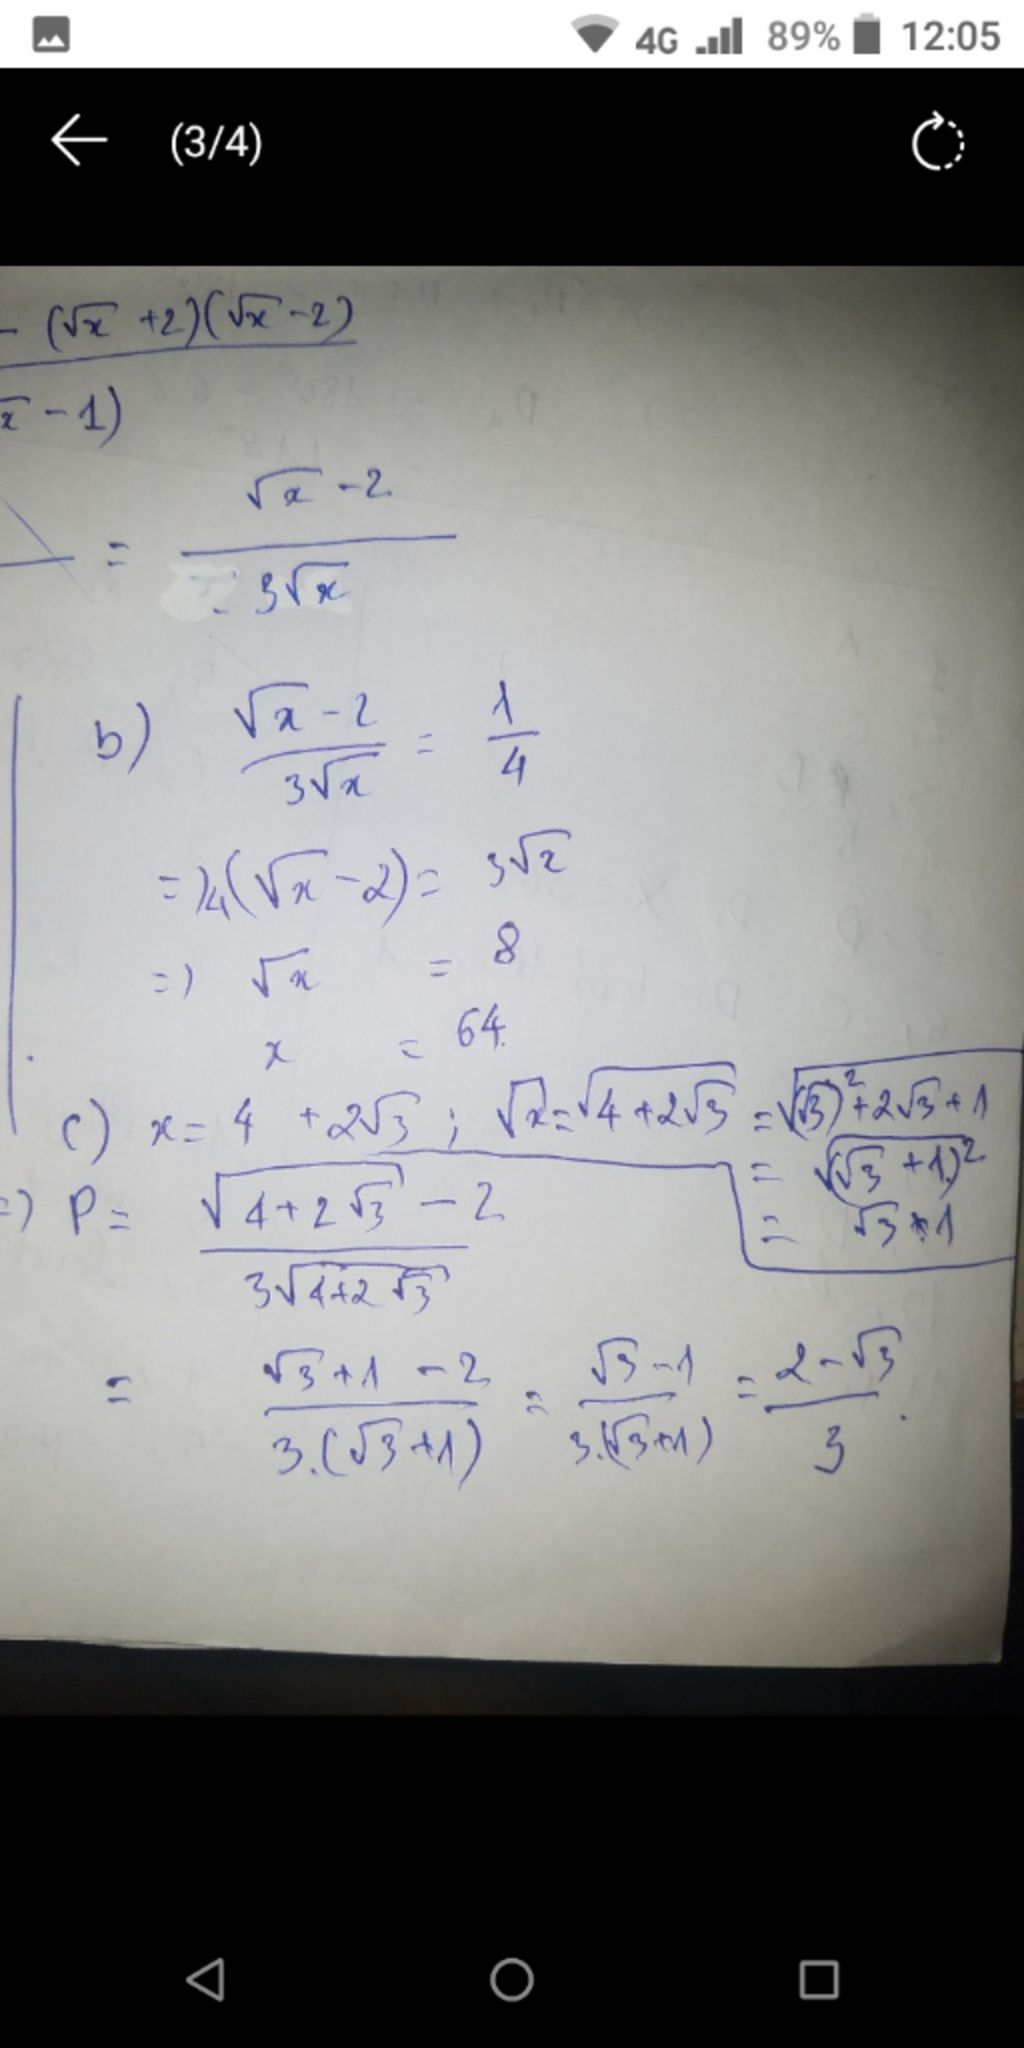 4G 89% 12:05
(3/4)
- (√x +2)(√x -2)
x - 1)
= (√x - 2)/(3√x)
b) (√x - 2)/(3√x) = 1/4
=) 4(√x - 2) = 3√x
=) √x = 8
x = 64
c) x = 4 + 2√3 ; √x = √(4+2√3) = √((√3)²+2√3+1)
= √((√3 +1)²)
= √3+1
=) P = (√(4+2√3) - 2)/(3√(4+2√3))
= (√3+1 - 2)/(3.(√3+1)) = (√3-1)/(3.(√3+1)) = (2-√3)/3.